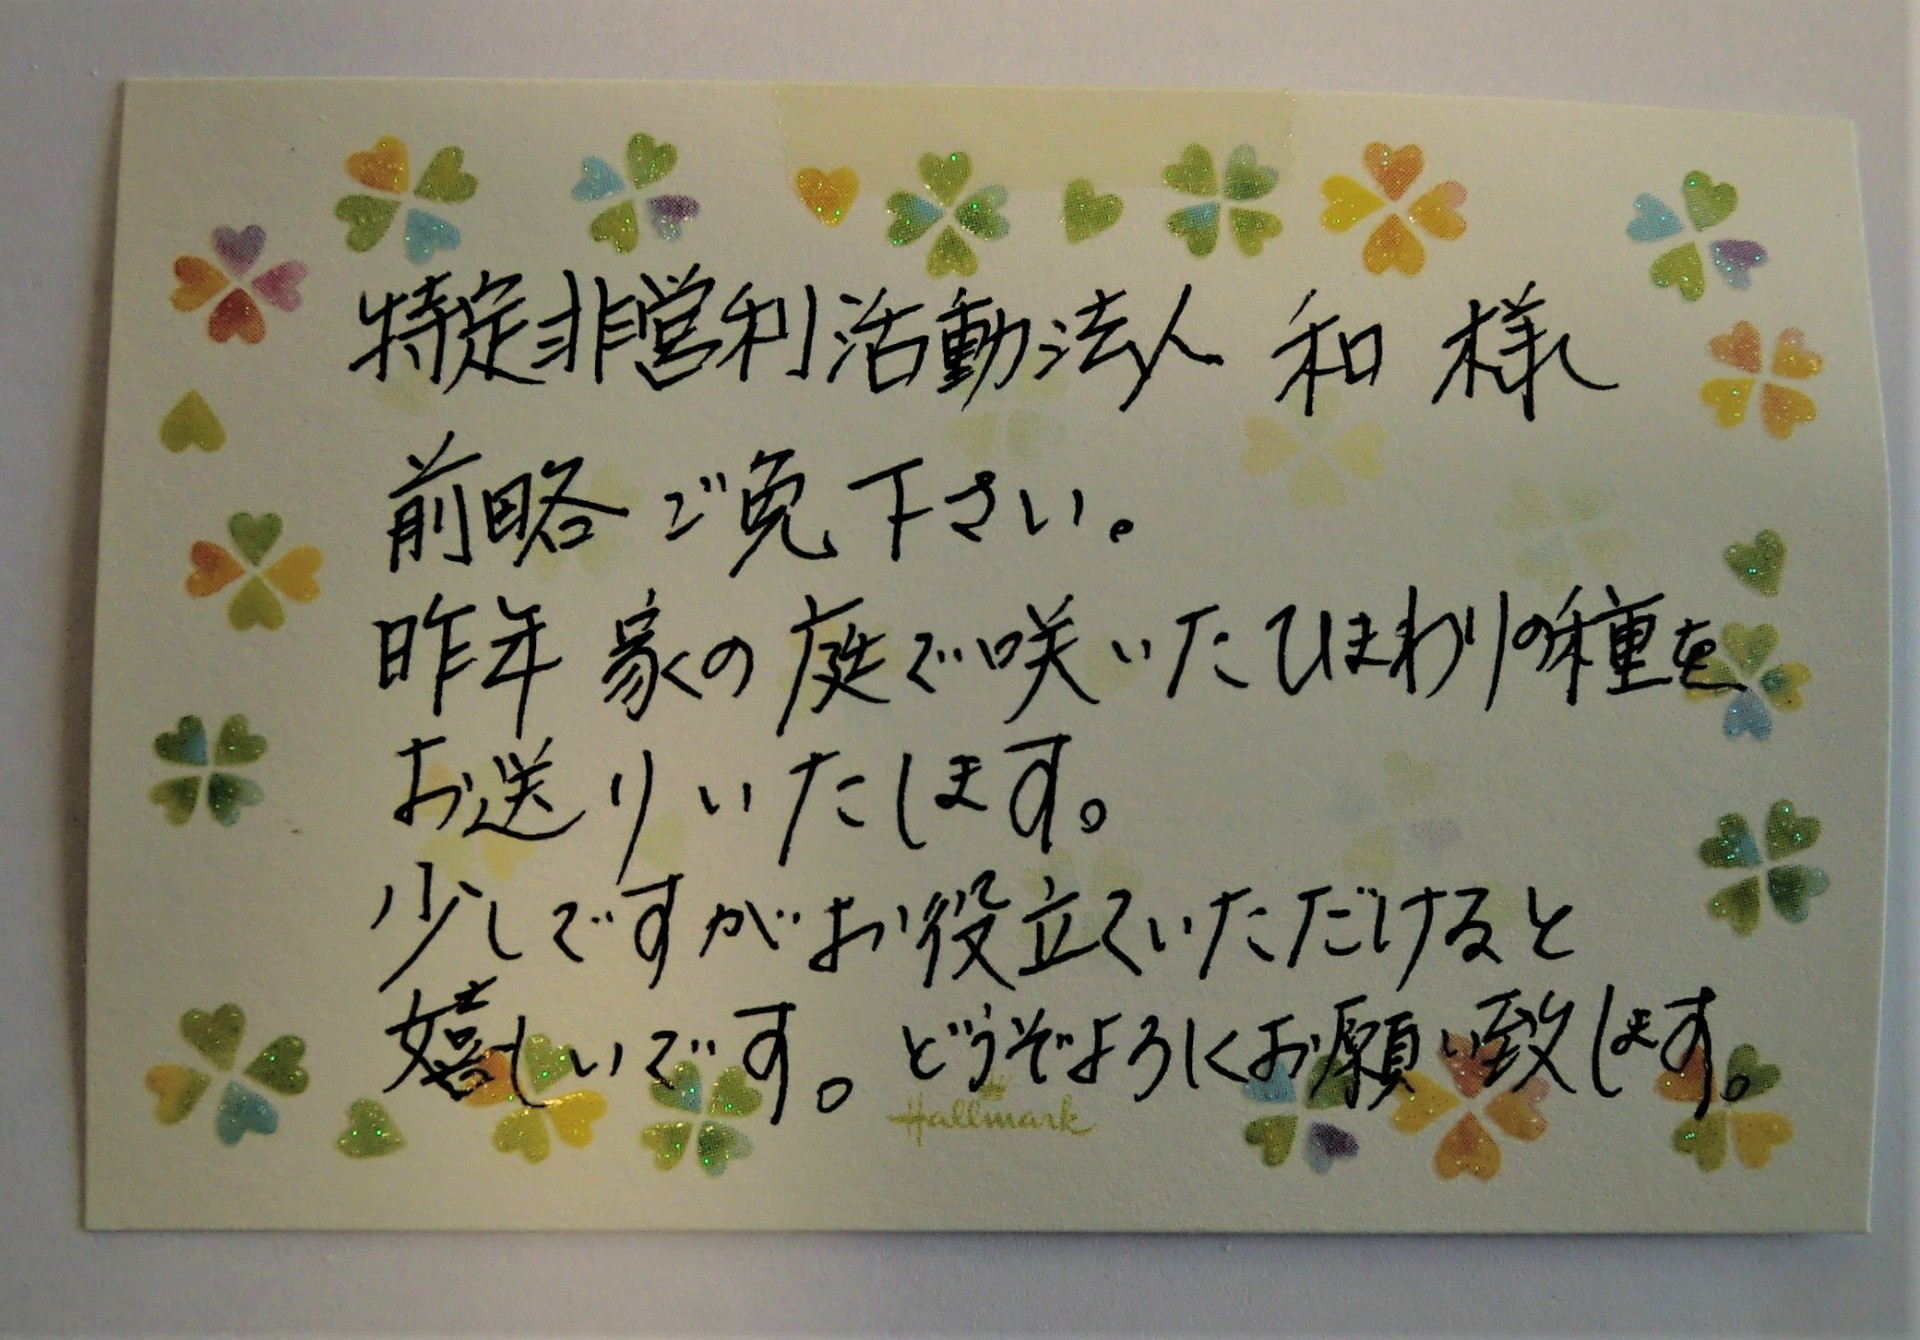 特定非営利活動法人 和 様
前略 ご免下さい。
昨年 家の庭で咲いたひまわりの種を
お送りいたします。
少しですがお役立ていただけると
嬉しいです。どうぞよろしくお願い致します。
Hallmark